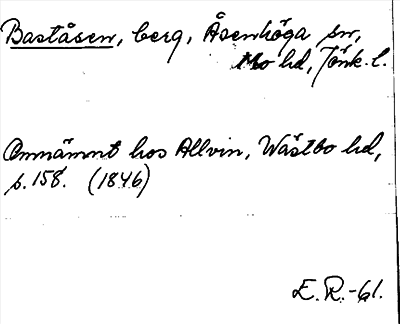 Baståsen, berg, Åsenhöga sn,
Mo hd, Jönk. l.
Omnämnt hos Allvin, Wästbo hd,
s. 158. (1846)
E. R. -61.